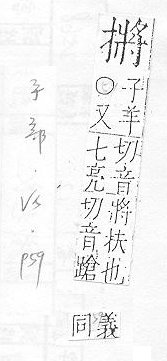 摪
子羊切音將扶也
○又七亮切音蹌
義同
子部.
p59